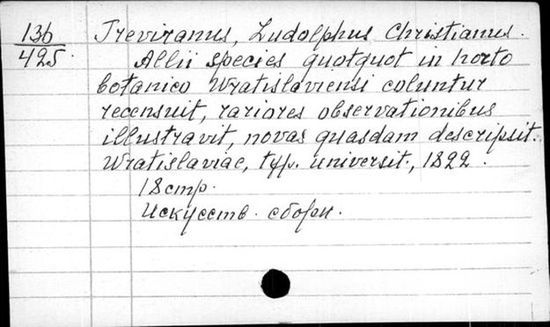 136
425
Treviranus, Ludolphus Christianus.
Allii species quotquot in horto
botanico Wratislaviensi coluntur
recensuit, rariores observationibus
illustravit, novas quasdam descripsit.
Wratislaviae, typ. universit., 1822.
18 стр.
Искусств. сборн.